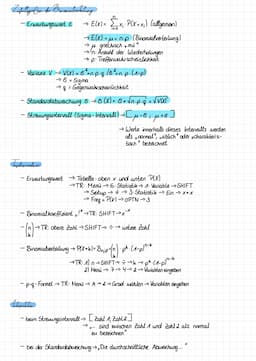 - Erwartungswert E → E(X) = Σ xᵢ · P(X = xᵢ) (allgemein)
→ E(X) = μ = n · p (Binomialverteilung)
→ μ: griechisch „mü“
→ n: Anzahl der Wiederholungen
→ p: Trefferwahrscheinlichkeit
- Varianz V → V(X) =
→ σ = Sigma
→ q = Gegenwahrscheinlichkeit
- Standardabweichung σ → σ(X) = σ = √n·p·q = √V(X)
- Streuungsintervall (Sigma-Intervall) → [μ-σ ; μ+σ]
→ Werte innerhalb dieses Intervalls werden
als „normal“, „üblich“ oder
bezeichnet
- Erwartungswert → Tabelle: oben x und unten P(X)
→ TR: Menü → 6: Statistik → 1: Variable → SHIFT
→ Setup → → 3: Statistik → Ein →
→ Freq = P(X) → OPTN → 3
→ TR: SHIFT →
→ TR: obere Zahl → SHIFT → ÷ → untere Zahl
- Binomialverteilung →
→ TR: 1) n → SHIFT → ÷ → k →
2) Menü → 7 → 4 → 2 → Variablen eingeben
- p-q-Formel → TR: Menü → A → 2 → Grad wählen → Variablen eingeben
- beim Streuungsintervall → [Zahl 1, Zahl 2]
→ „... sind zwischen Zahl 1 und Zahl 2 als normal
zu bezeichnen“
- bei der Standardabweichung → „Die durchschnittliche Abweichung...“